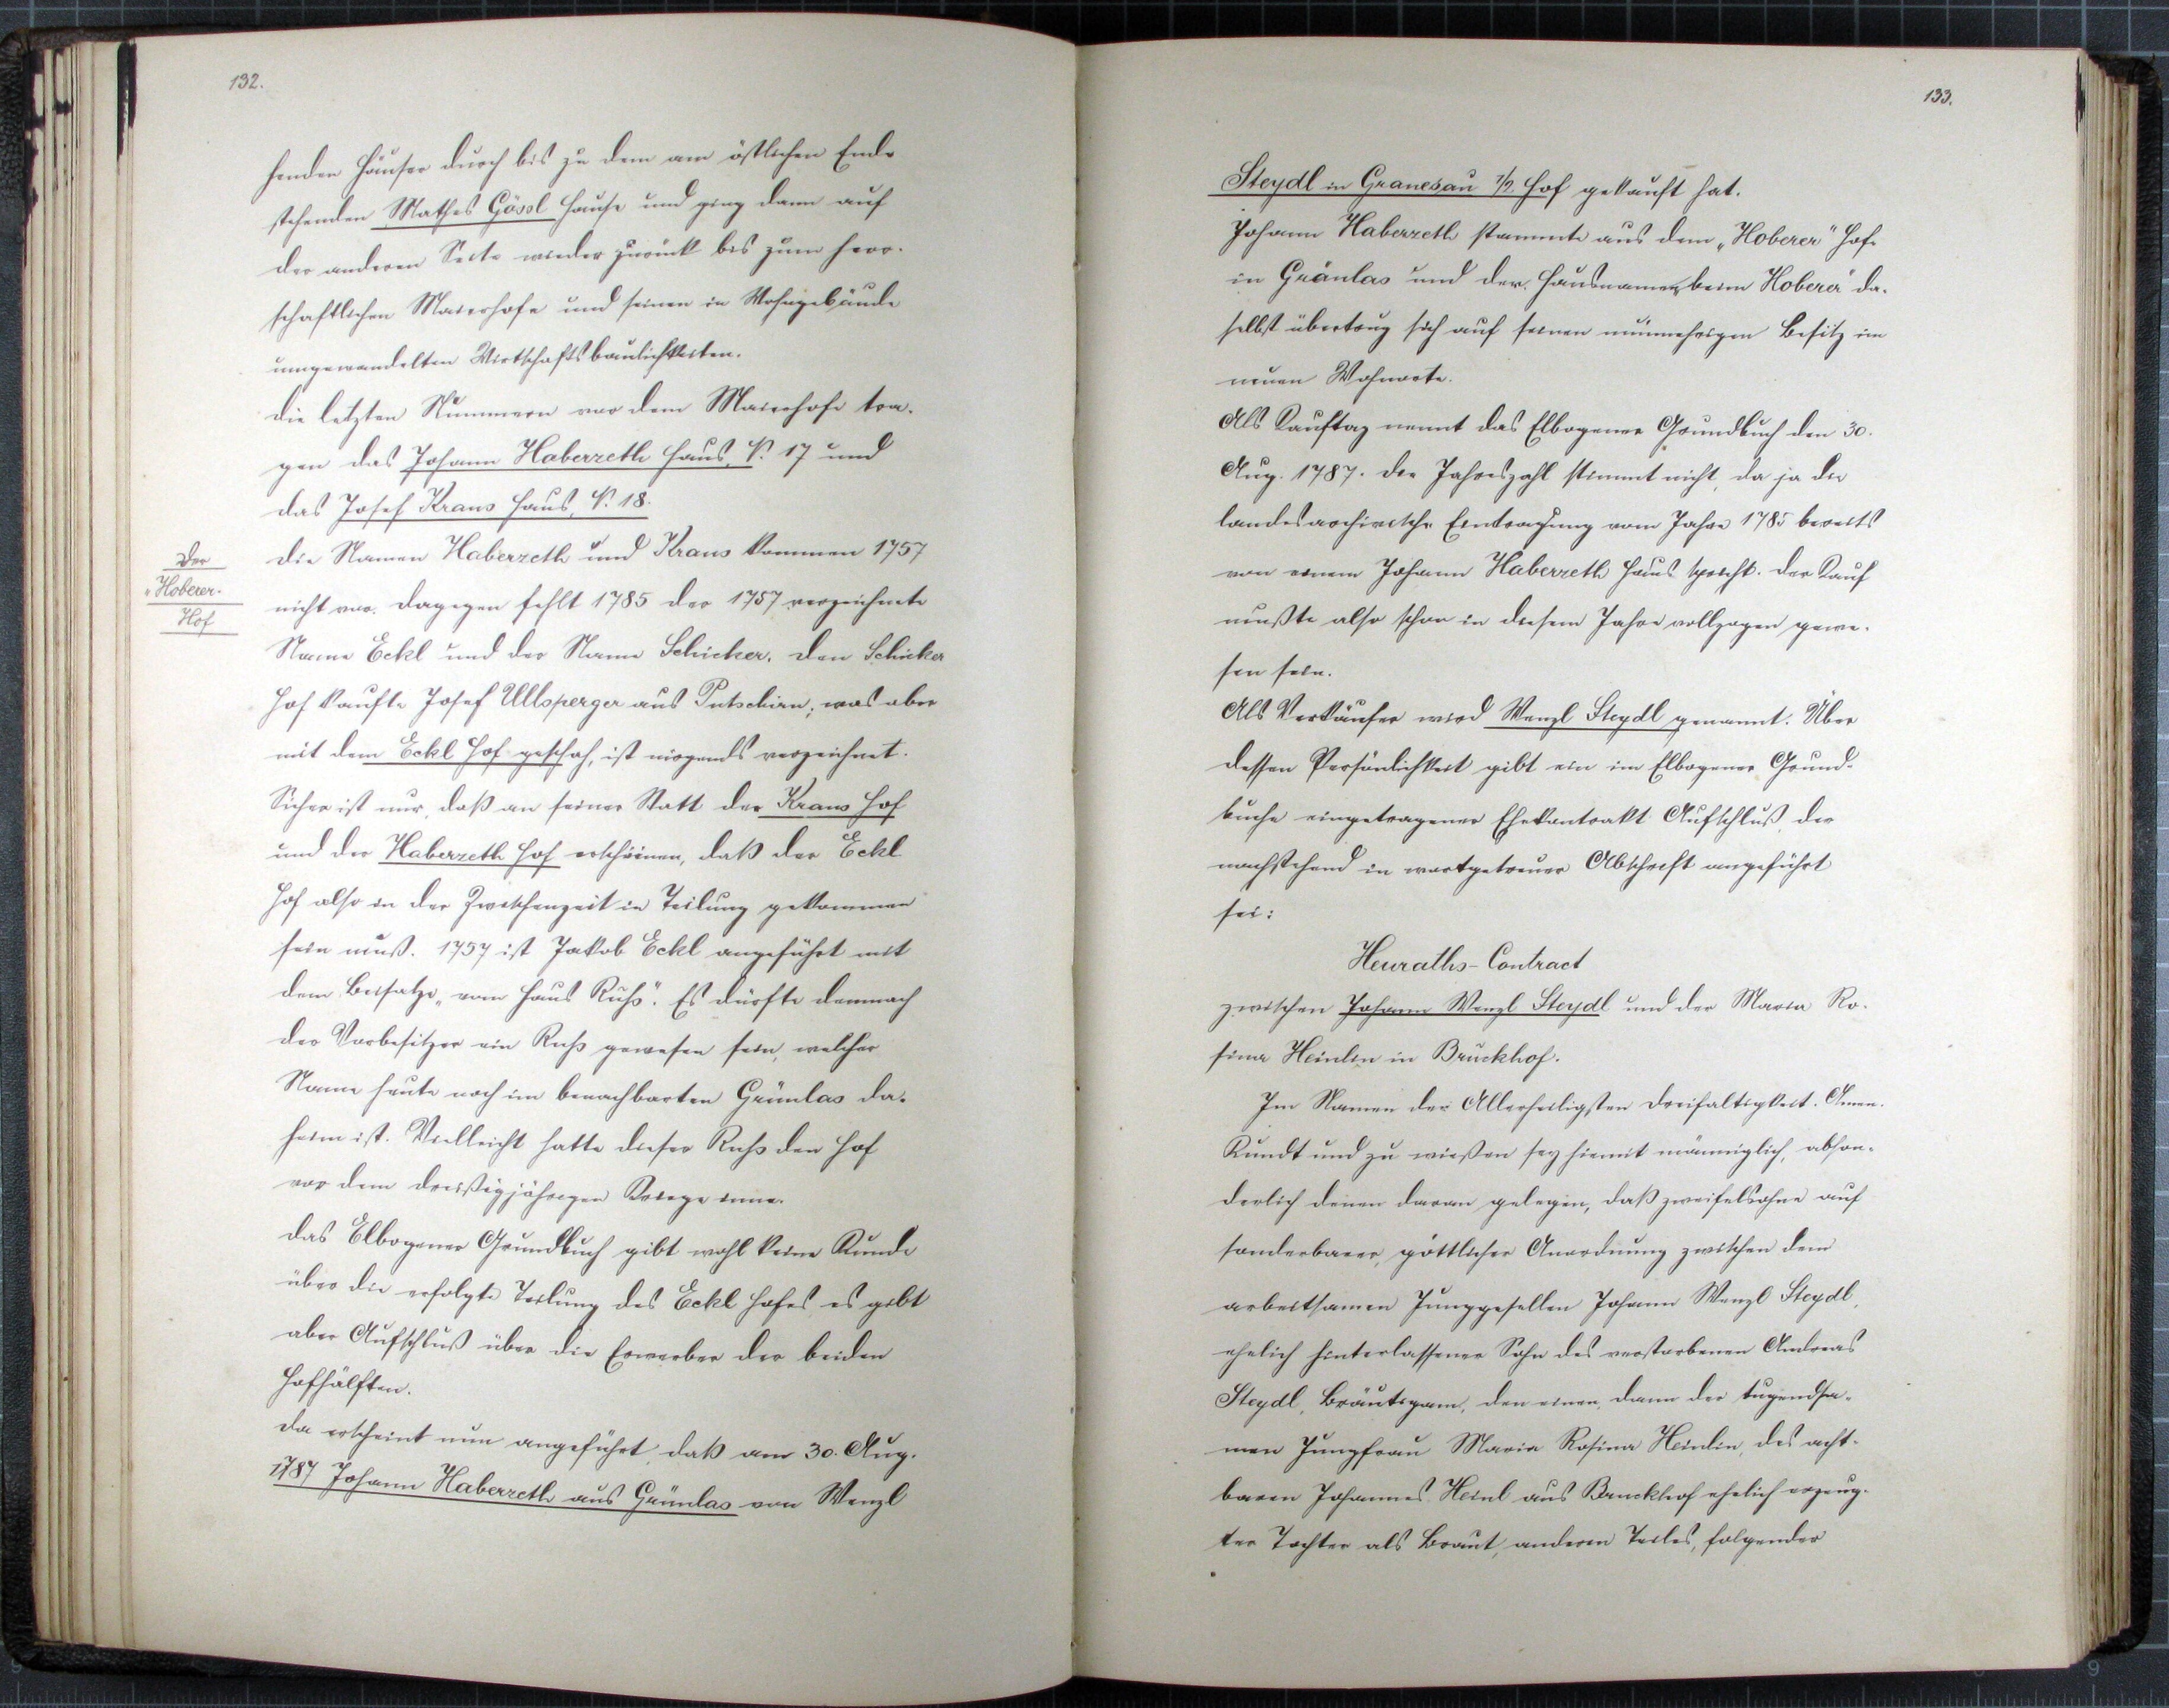 132.
henden Häuser durch bis zu dem am östlichen Ende
stehenden Mathes Gössl Hause und ging dann auf
der anderen Seite wieder zurück bis zum herr-
schaftlichen Maierhofe und seinen in Wohngebäude
umgewandelten Wirtschaftsbaulichkeiten.
Die letzten Nummern vor dem Maierhofe tra-
gen das Johann Haberzeth Haus, N. 17 und
das Josef Kraus Haus, N. 18.
Der
"Hoberer-
Hof
Die Namen Haberzeth und Kraus kommen 1757
nicht vor. Dagegen fehlt 1785 der 1757 verzeichnete
Name Eckl und der Name Schicker. Den Schicker
Hof kaufte Josef Ullsperger aus Putschirn; was aber
mit dem Eckl Hof geschah, ist nirgends verzeichnet.
Sicher ist nur, daß an seiner Statt der Kraus Hof
und der Haberzeth Hof erscheinen, daß der Eckl
Hof also in der Zwischenzeit in Teilung gekommen
sein muß. 1757 ist Jakob Eckl angeführt mit
dem Beisatze „vom Haus Ruhs". Es dürfte demnach
der Vorbesitzer ein Ruhs gewesen sein, welcher
Name heute noch im benachbarten Grünlas da-
heim ist. Vielleicht hatte dieser Ruhs den Hof
vor dem dreißigjährigen Kriege inne.
Das Elbogener Grundbuch gibt wohl keine Kunde
über die erfolgte Teilung des Eckl Hofes, es gibt
aber Aufschluß über die Erwerber der beiden
Hofhälften.
Da erscheint nun angeführt, daß am 30. Aug.
1787 Johann Haberzeth aus Grünlas von Wenzl
133.
Steydl in Granesau 1/2 Hof gekauft hat.
Johann Haberzeth stammte aus dem „Hoberer" Hofe
in Grünlas und der Hausname „beim Hoberer" da-
selbst übertrug sich auf seinen nunmehrigen Besitz im
neuen Wohnorte.
Als Kauftag nennt das Elbogener Grundbuch den 30.
Aug. 1787. Die Jahreszahl stimmt nicht, da ja die
landesarchivische Eintragung vom Jahre 1785 bereits
von einem Johann Haberzeth Haus spricht. Der Kauf
mußte also schon in diesem Jahre vollzogen gewe-
sen sein.
Als Verkäufer wird Wenzl Steydl genannt. Über
dessen Persönlichkeit gibt ein im Elbogener Grund-
buche eingetragener Ehekontrakt Aufschluß, der
nachstehend in wortgetreuer Abschrift angeführt
sei:
Heuraths-Contract
zwischen Johann Wenzl Steydl und der Maria Ro-
sina Heinlin in Bruckhof.
Im Namen der Allerheiligsten Dreifaltigkeit. Amen.
Kundt und zu wießen sey hiemit männiglich, abson-
derlich denen daran gelegen, daß zweifelsohne auf
sonderbarer, göttlicher Anordnung zwischen dem
arbeitsamen Junggesellen Johann Wenzl Steydl,
ehelich hinterlassener Sohn des verstorbenen Andreas
Steydl, Bräutigam, den einen, dann der tugendsa-
men Jungfrau Maria Rosina Heinlin, des acht-
baren Johannes Heinl aus Bruckhof ehelich erzeug-
ter Tochter als Braut, anderen Teiles, folgender